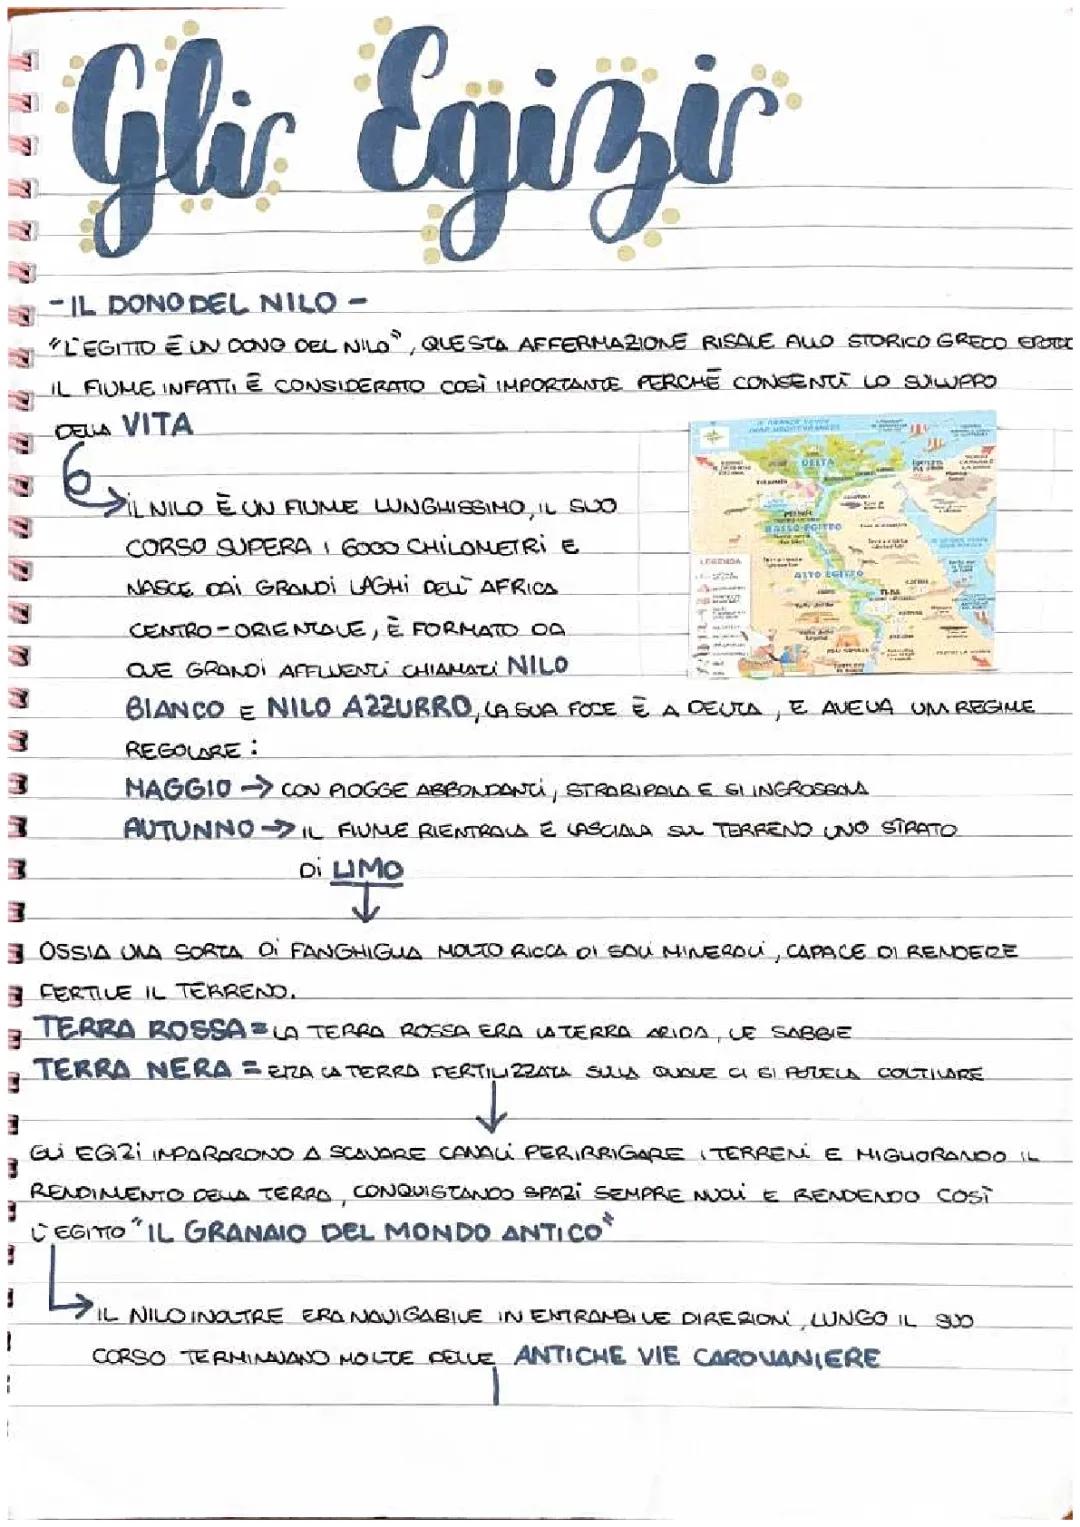 Gli Egizi
- IL DONO DEL NILO -
"L'EGITTO È UN DONO DEL NILO", QUESTA AFFERMAZIONE RISALE ALLO STORICO GRECO ERODO
IL FIUME INFATTI È CONSIDERATO COSÌ IMPORTANTE PERCHÉ CONSENTÌ LO SVILUPPO
DELLA VITA
IL NILO È UN FIUME LUNGHISSIMO, IL SUO
CORSO SUPERA I 6000 CHILOMETRI E
NASCE DAI GRANDI LAGHI DELL'AFRICA
CENTRO-ORIENTALE, È FORMATO DA
DUE GRANDI AFFLUENTI CHIAMATI NILO
BIANCO E NILO AZZURRO, LA SUA FOCE È A DELTA, E AVEVA UN REGIME
REGOLARE:
MAGGIO → CON PIOGGE ABBONDANTI, STRARIPAVA E SI INGROSSAVA
AUTUNNO → IL FIUME RIENTRAVA E LASCIAVA SUL TERRENO UNO STRATO
DI LIMO
OSSIA UNA SORTA DI FANGHIGLIA MOLTO RICCA DI SALI MINERALI, CAPACE DI RENDERE
FERTILE IL TERRENO.
TERRA ROSSA = LA TERRA ROSSA ERA LA TERRA ARIDA, LE SABBIE
TERRA NERA = ERA LA TERRA FERTILIZZATA SULLA QUALE CI SI POTEVA COLTIVARE
GLI EGIZI IMPARARONO A SCAVARE CANALI PER IRRIGARE I TERRENI E MIGLIORANDO IL
RENDIMENTO DELLA TERRA, CONQUISTANDO SPAZI SEMPRE NUOVI E RENDENDO COSÌ
L'EGITTO "IL GRANAIO DEL MONDO ANTICO"
IL NILO INOLTRE ERA NAVIGABILE IN ENTRAMBI LE DIREZIONI, LUNGO IL SUO
CORSO TERMINAVANO MOLTE DELLE ANTICHE VIE CAROVANIERE
DELTA
BASSO EGITTO
LEGENDA
ALTO EGITTO